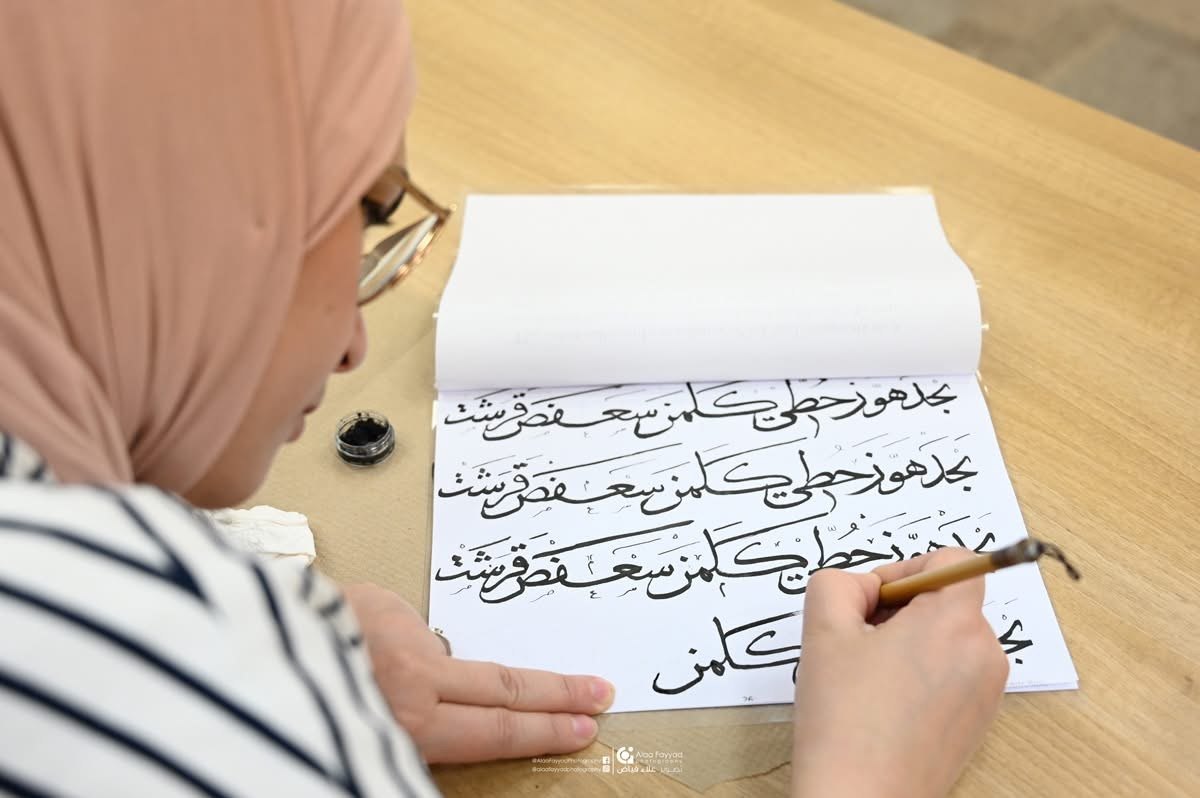 بجد هوّز حطّي كلمن سعفص قرشت
بجد هوّز حطّي كلمن سعفص قرشت
بجد هوّز حطّي كلمن سعفص قرشت
بجد كلمن
@AlaaFayyadPhotography
@alaafayyadphotography
Alaa Fayyad
photography
تصوير علاء فياض